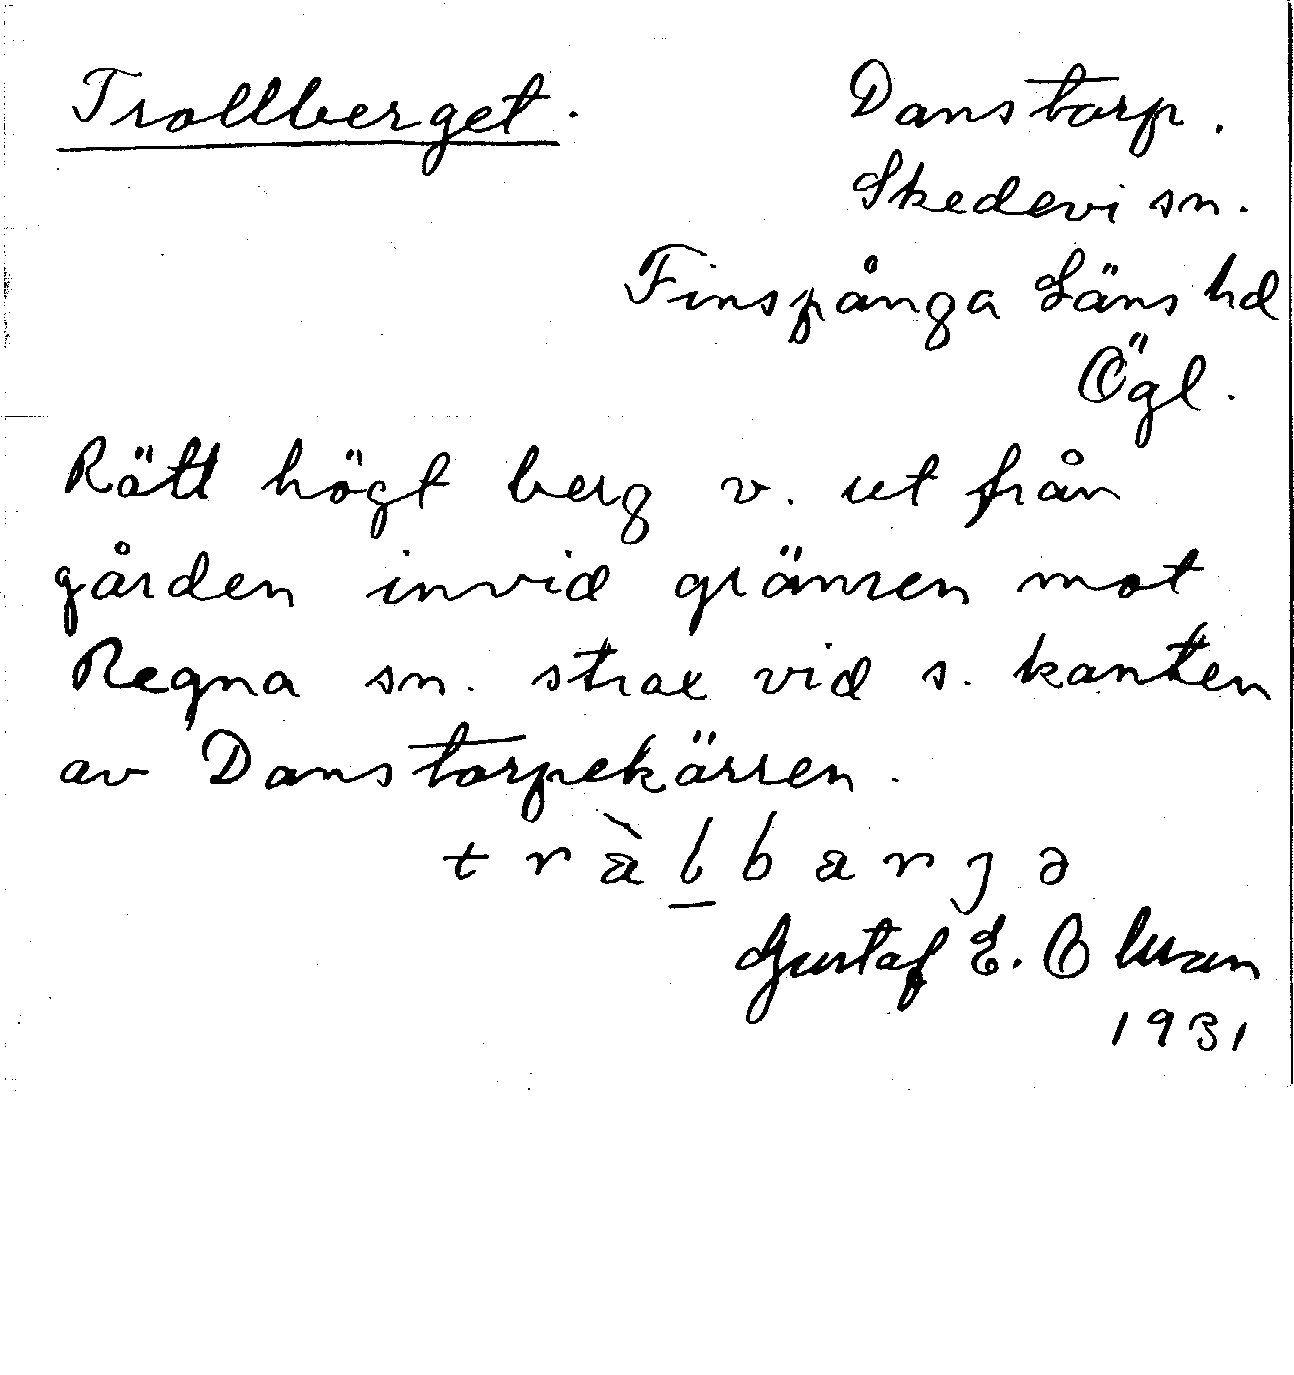 Trollberget.
Danstorp.
Skedevi sn.
Finspånga Läns hd
Ögl.
Rätt högt berg v. ut från
gården invid gränsen mot
Regna sn. strax vid s. kanten
av Danstorpekärren.
Gustaf E. Olman
1931